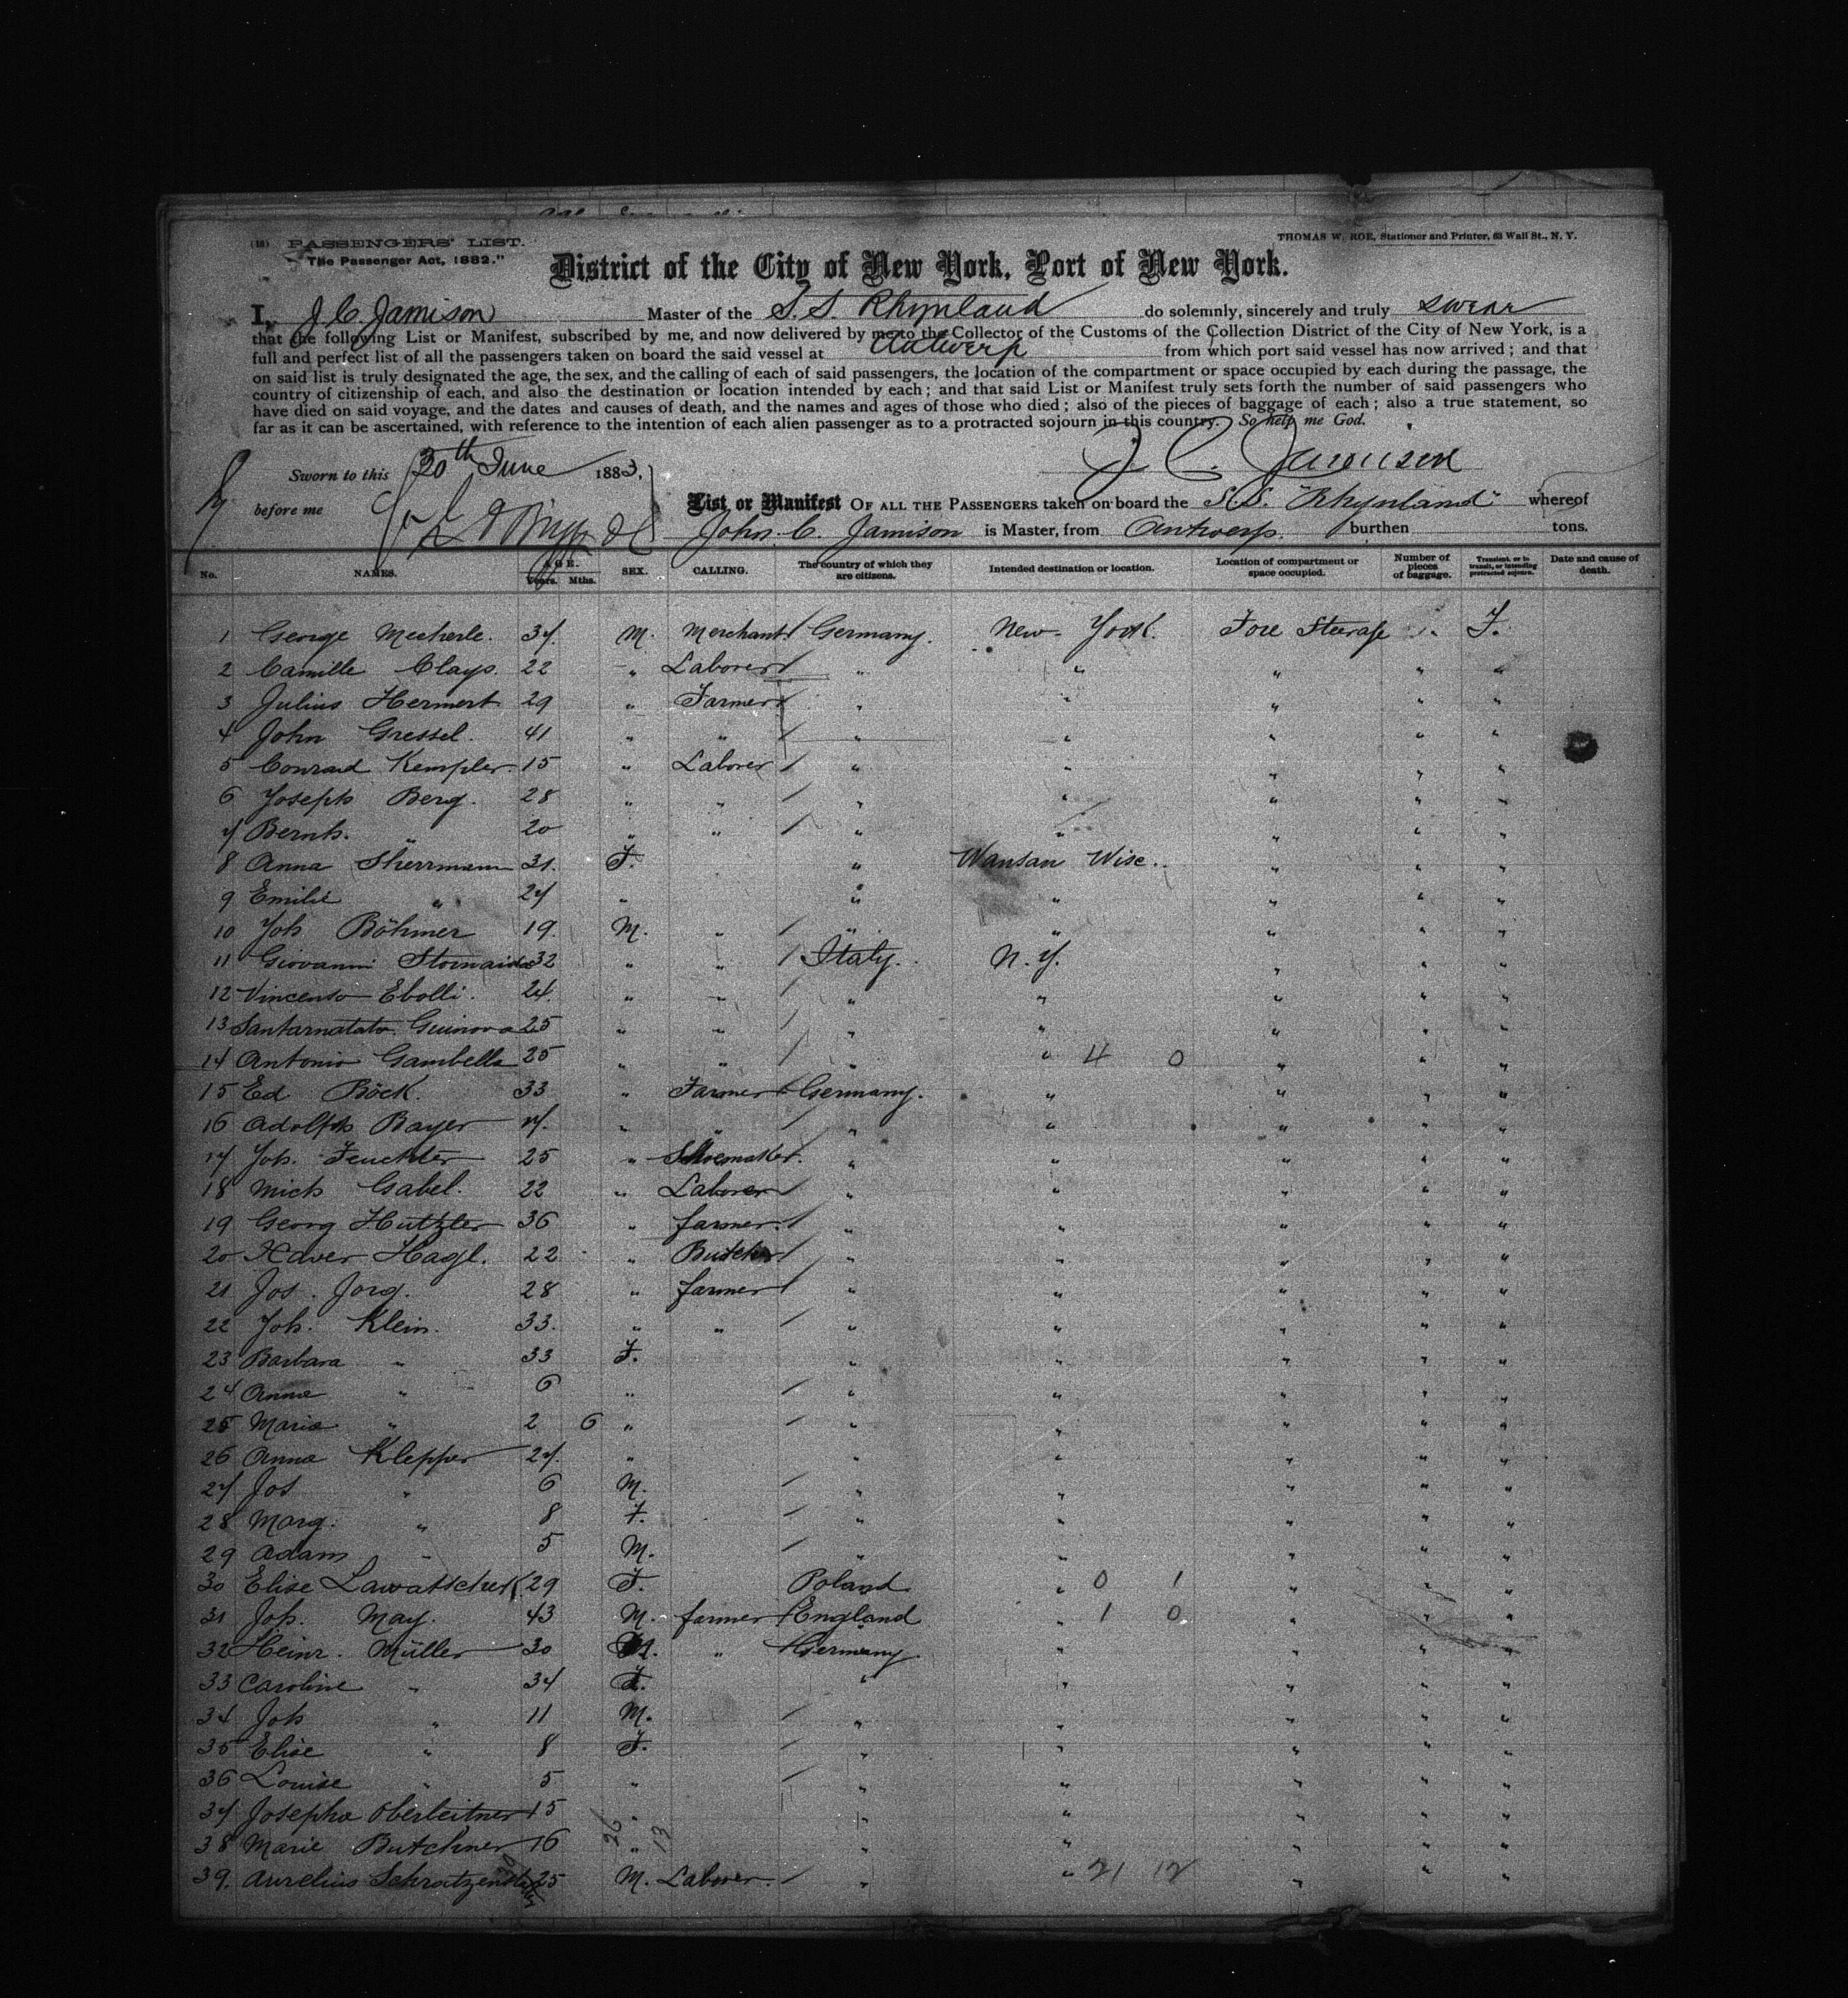 (18) PASSENGERS' LIST.
"The Passenger Act, 1882."
THOMAS W. ROE, Stationer and Printer, 63 Wall St., N. Y.
District of the City of New York, Port of New York.
I, J C Jamison Master of the S. S. Rhynland do solemnly, sincerely and truly swear
that the following List or Manifest, subscribed by me, and now delivered by me to the Collector of the Customs of the Collection District of the City of New York, is a
full and perfect list of all the passengers taken on board the said vessel at Antwerp from which port said vessel has now arrived; and that
on said list is truly designated the age, the sex, and the calling of each of said passengers, the location of the compartment or space occupied by each during the passage, the
country of citizenship of each, and also the destination or location intended by each; and that said List or Manifest truly sets forth the number of said passengers who
have died on said voyage, and the dates and causes of death, and the names and ages of those who died; also of the pieces of baggage of each; also a true statement, so
far as it can be ascertained, with reference to the intention of each alien passenger as to a protracted sojourn in this country. So help me God.
J C. Jamison
Sworn to this 30th June 1883,
before me
List or Manifest OF ALL THE PASSENGERS taken on board the S.S. "Rhynland" whereof
John. C. Jamison is Master, from Antwerp. burthen tons.
No. NAMES. AGE. Years. Mths. SEX. CALLING. The country of which they are citizens. Intended destination or location. Location of compartment or space occupied. Number of pieces of baggage. Transient, or in transit, or intending protracted sojourn. Date and cause of death.
1 George Mecherle. 37. M. Merchant / Germany. New-York. Fore Steerage 1. T.
2 Camille Clays. 22 " Laborer / " " " " "
3 Julius Hermert 29 " Farmer / " " " " "
4 John Gressel. 41 " " / " " " " "
5 Conrad Kempler. 15 " Laborer / " " " " "
6 Joseph Berg. 28 " " / " " " " "
7 Bernh. " 20 " " / " " " " "
8 Anna Sherrmann 31. F. " Wausau Wisc. " " "
9 Emilie " 27 " " " " " "
10 Joh Böhmer 19. M. " / " " " " "
11 Giovanni 32 " " / Italy. N. Y. " " "
12 Vincenso Ebolli. 24. " " / " " " " "
13 Santarnatato 25 " " / " " " " "
14 Antonio Gambella 25 " " / " " 4 0 " " "
15 Ed Böck. 33 " Farmer / Germany. " " " "
16 Adolph Bayer 17. " " / " " " " "
17 Joh. Feuchter 25 " Shoemaker. " " " " "
18 Mich Gabel. 22 " Laborer / " " " " "
19 Georg Hutzler 36 " farmer. / " " " " "
20 Xaver Hagl. 22 " Butcher / " " " " "
21 Jos. Jorg. 28 " farmer / " " " " "
22 Joh. Klein. 33. " " / " " " " "
23 Barbara " 33 F. " " " " "
24 Anna " 6 " / " " " " "
25 Maria " 2 6 " / " " " " "
26 Anna Klepper 27. " " " " " "
27 Jos " 6 M. / " " " " "
28 Marg. " 8 F. / " " " " "
29 Adam " 5 M. / " " " " "
30 Elise Lawattchek. 29 F. Poland " 0 1 " " "
31 Joh. May. 43 M. farmer / England " 1 0 " " "
32 Heinr. Müller 30 M. " / Germany. " " " "
33 Caroline " 34 F. " " " " "
34 Joh " 11 M. / " " " " "
35 Elise " 8 F. / " " " " "
36 Louise " 5 " / " " " "
37 Josepha Oberleitner 15 " " " " " "
38 Marie Butchner 16 " " " " " "
26 13
39. Aurelius 25 M. Laborer. / " " 21 12 " " "